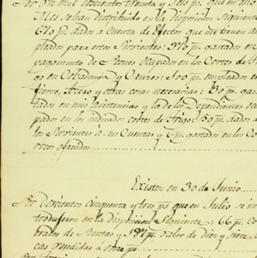 Por ... mil Doscientos Noventa y Seis ps. que en dho
Mes se han distribuido en la disposicion siguiente
670 ps. dados a Cuenta de efectos que me tienen ...
plidos para estos Sirvientes: 370 ps. gastados en
pagamento de Peones Ocupados en los Cortes de
... en Cobradores y Carreos: 100 ps. empleados en
fierro, Azero y otras cosas necesarias: 30 ps. gas
tados en mis Asistencias y la de los Dependientes ocu
pados en los indicados cortes de Trigo: 50 ps. dados a
los Sirvientes a sus Cuentas y 6 ps. gastados en los Co
rreos
Existen en 30 de Junio
Por Doscientos Cinquenta y tres ps. que en Julio se in
trodujeron en la Disposicion Siguiente: 66 ps. co
brados de Rentas y 187 ps. valor de diez y siete
cas vendidas a once ps.